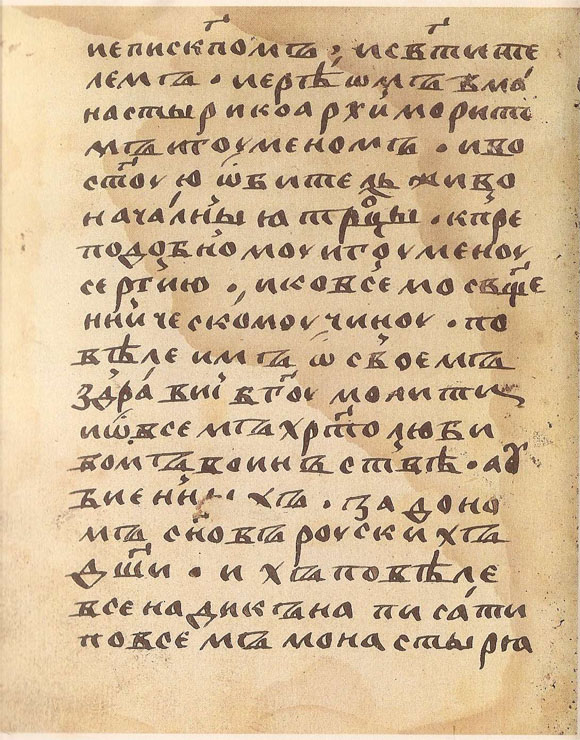 иепискⷭ҇помъ · исв҃тите
лемъ · иерѣѡмъ в мⷪ
настырикоархиморито
мъ игоуменомъ · и во
ст҃оую ѡбитель живо
начал҃ны ю тр҃цы · к пре
подобномоу игоуменоу
сергию · и ковсемо свⷳ҇ще
нническомоу чиноу · по
вѣле имъ ѡ своемъ
здравии б҃гоу молити
и ѡвсемъ хрⷭ҇толюби
вомъ воинъствѣ · а оу
биенны хъ · за доно
мъ сн҃овъ роуски хъ
дш҃и · и хъ повѣле
все на дикъна писати
по всемъ монастырю